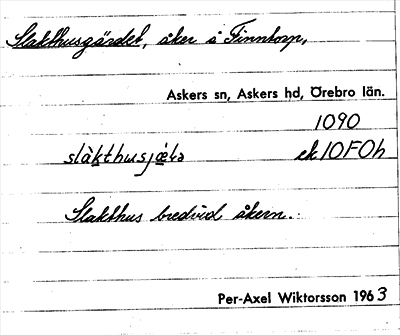 Slakthusgärdet, åker å Finntorp,
Askers sn, Askers hd, Örebro län.
1090
slàkthusjǽta ek 10F0h
Slakthus bredvid åkern.
Per-Axel Wiktorsson 1963